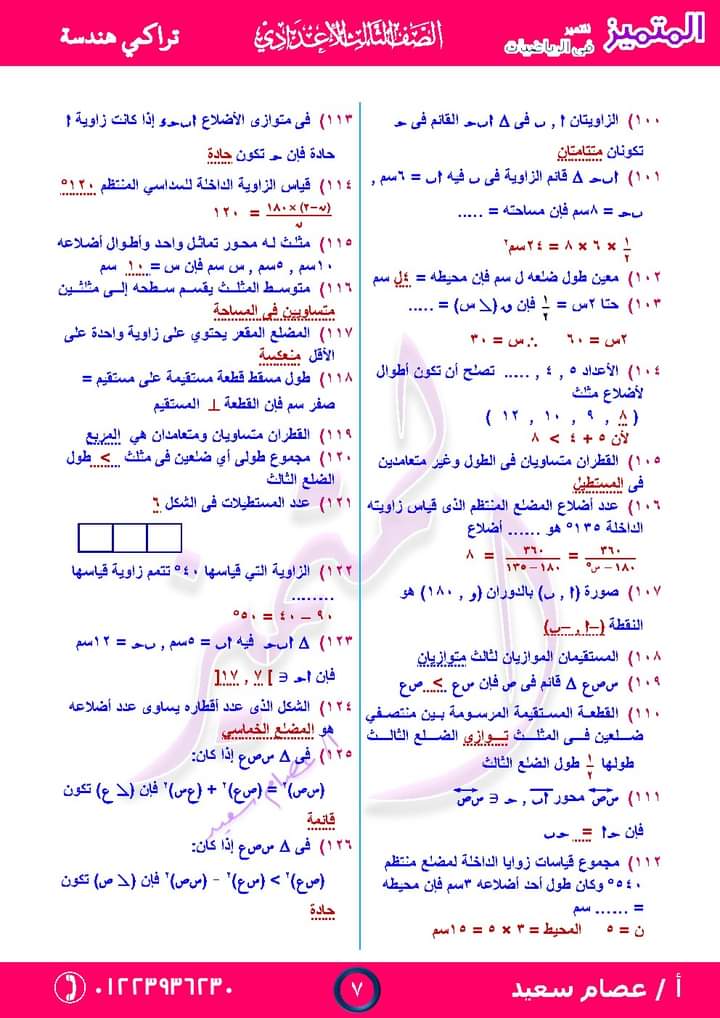 المتميز
للتميز
فى الرياضيات
الصف الثالث الإعدادي
تراكمي هندسة
١٠٠) الزاويتان ا , ب فى Δ ابحـ القائم فى حـ
تكونان متتامتان
١٠١) ابحـ Δ قائم الزاوية فى ب فيه اب = ٦سم ,
بحـ = ٨سم فإن مساحته = .....
١/٢ × ٦ × ٨ = ٢٤سم٢
١٠٢) معين طول ضلعه ل سم فإن محيطه = ٤ل سم
١٠٣) حتا ٢س = ١/٢ فإن ق(∠ س) = .....
٢س = ٦٠ ∴ س = ٣٠
١٠٤) الأعداد ٥ , ٤ , ..... تصلح أن تكون أطوال
لأضلاع مثلث
( ٨ , ٩ , ١٠ , ١٢ )
لأن ٥ + ٤ > ٨
١٠٥) القطران متساويان فى الطول وغير متعامدين
فى المستطيل
١٠٦) عدد أضلاع المضلع المنتظم الذى قياس زاويته
الداخلة ١٣٥° هو ...... أضلاع
٣٦٠/(١٨٠-س°) = ٣٦٠/(١٨٠-١٣٥) = ٨
١٠٧) صورة (ا , ب) بالدوران (و , ١٨٠) هو
النقطة (-ا , -ب)
١٠٨) المستقيمان الموازيان لثالث متوازيان
١٠٩) س ص ع Δ قائم فى ص فإن س ع > ص ع
١١٠) القطعة المستقيمة المرسومة بين منتصفي
ضلعين فى المثلث توازى الضلع الثالث
طولها ١/٢ طول الضلع الثالث
١١١) س ص محور اب , حـ ∈ س ص
فإن حـا = حـب
١١٢) مجموع قياسات زوايا الداخلة لمضلع منتظم
٥٤٠° وكان طول أحد أضلاعه ٣سم فإن محيطه
= ...... سم
ن = ٥ المحيط = ٣ × ٥ = ١٥سم
١١٣) فى متوازى الأضلاع ابحـء إذا كانت زاوية ا
حادة فإن حـ تكون حادة
١١٤) قياس الزاوية الداخلة للسداسي المنتظم ١٢٠°
(ن-٢)×١٨٠/ن = ١٢٠
١١٥) مثلث له محور تماثل واحد وأطوال أضلاعه
١٠سم , ٥سم , س سم فإن س = ١٠ سم
١١٦) متوسط المثلث يقسم سطحه إلى مثلثين
متساويين فى المساحة
١١٧) المضلع المقعر يحتوي على زاوية واحدة على
الأقل منعكسة
١١٨) طول مسقط قطعة مستقيمة على مستقيم =
صفر سم فإن القطعة ⊥ المستقيم
١١٩) القطران متساويان ومتعامدان هي المربع
١٢٠) مجموع طولى أي ضلعين فى مثلث > طول
الضلع الثالث
١٢١) عدد المستطيلات فى الشكل ٦
١٢٢) الزاوية التي قياسها ٤٠° تتمم زاوية قياسها
........
٩٠ - ٤٠ = ٥٠°
١٢٣) Δ ابحـ فيه اب = ٥سم , بحـ = ١٢سم
فإن احـ ∈ ]٧ , ١٧[
١٢٤) الشكل الذى عدد أقطاره يساوى عدد أضلاعه
هو المضلع الخماسي
١٢٥) فى Δ س ص ع إذا كان:
(س ص)٢ = (ص ع)٢ + (ع س)٢ فإن (∠ ع) تكون
قائمة
١٢٦) فى Δ س ص ع إذا كان:
(ص ع)٢ > (س ع)٢ - (س ص)٢ فإن (∠ ص) تكون
حادة
المتميز
أ. عصام سعيد
أ / عصام سعيد
٧
٠١٢٢٣٩٣٦٢٣٠